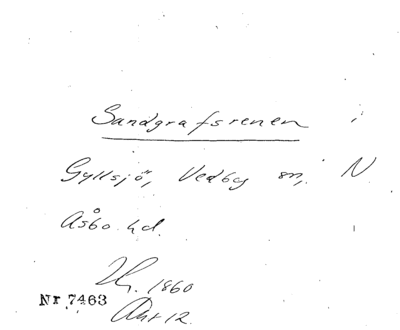 Sandgrafsrenen i
Gyllsjö, Vedby sn, N
Åsbo hd.
1860
Nr 7463
Akt 12